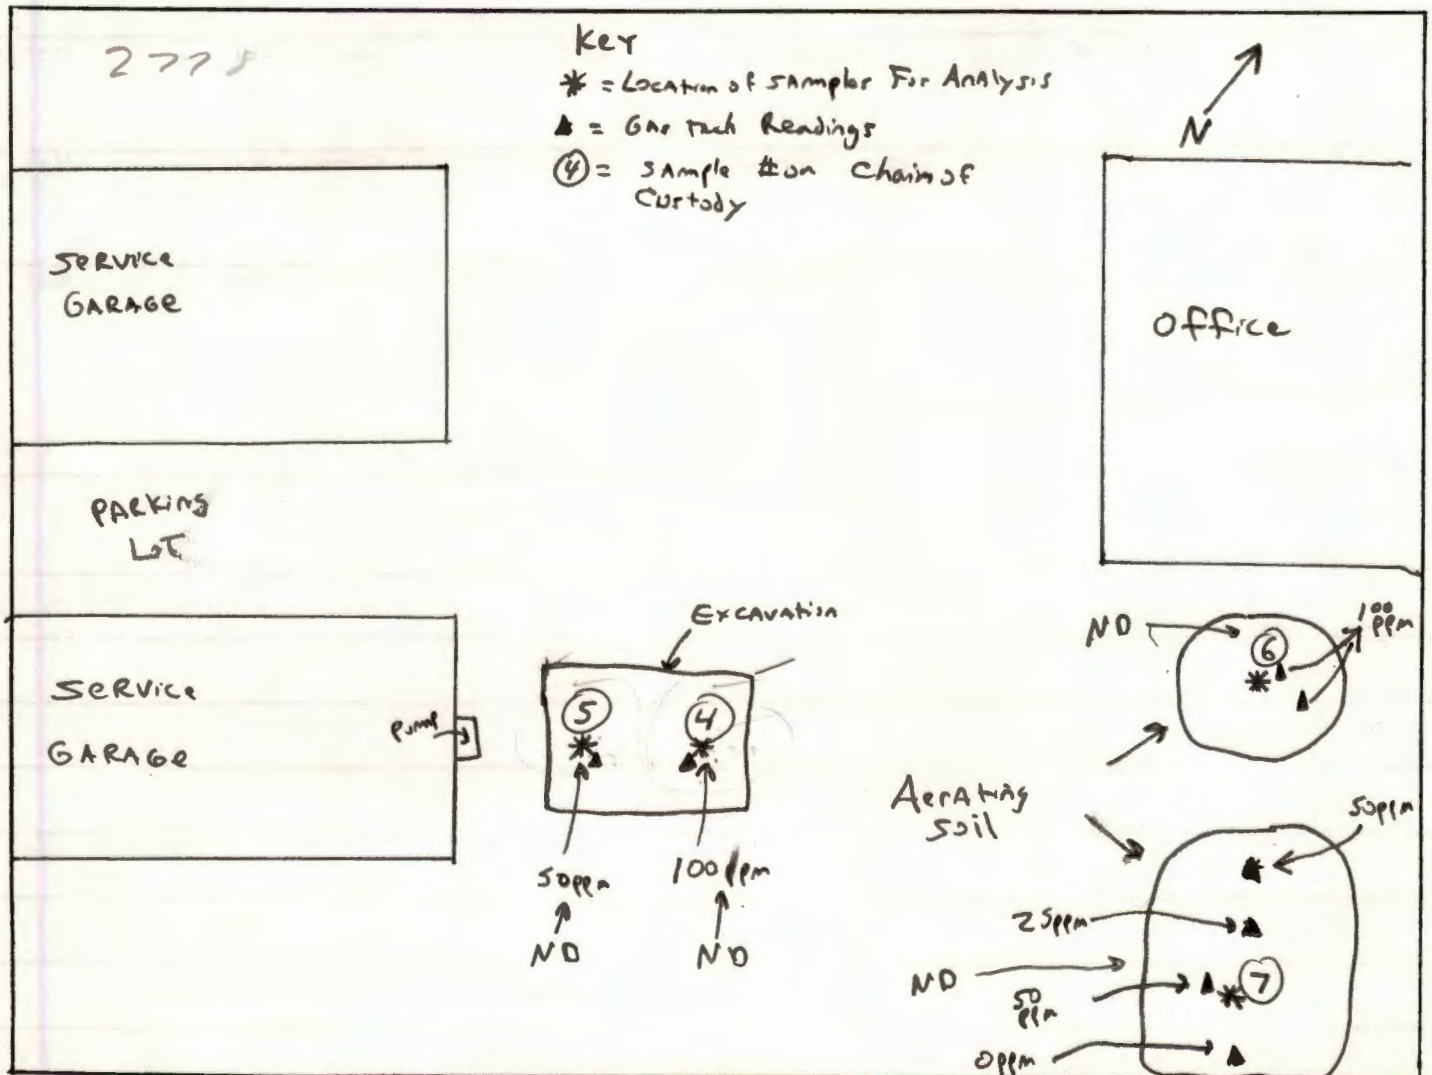 277
Key
* = Location of samples For Analysis
▲ = Gas Tech Readings
④ = Sample # on Chain of
Custody
N
Service
Garage
Office
Parking
Lot
Excavation
Service
Garage
pump
5
4
50ppm
100 ppm
ND
ND
ND
6
100
ppm
Aerating
Soil
50ppm
25ppm
ND
7
50
ppm
0ppm